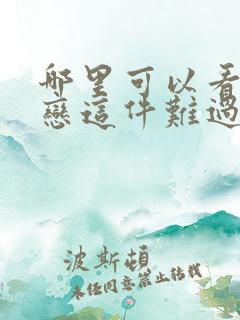 哪里可以看
戀這件難過
波斯頓
未經同意禁止轉載